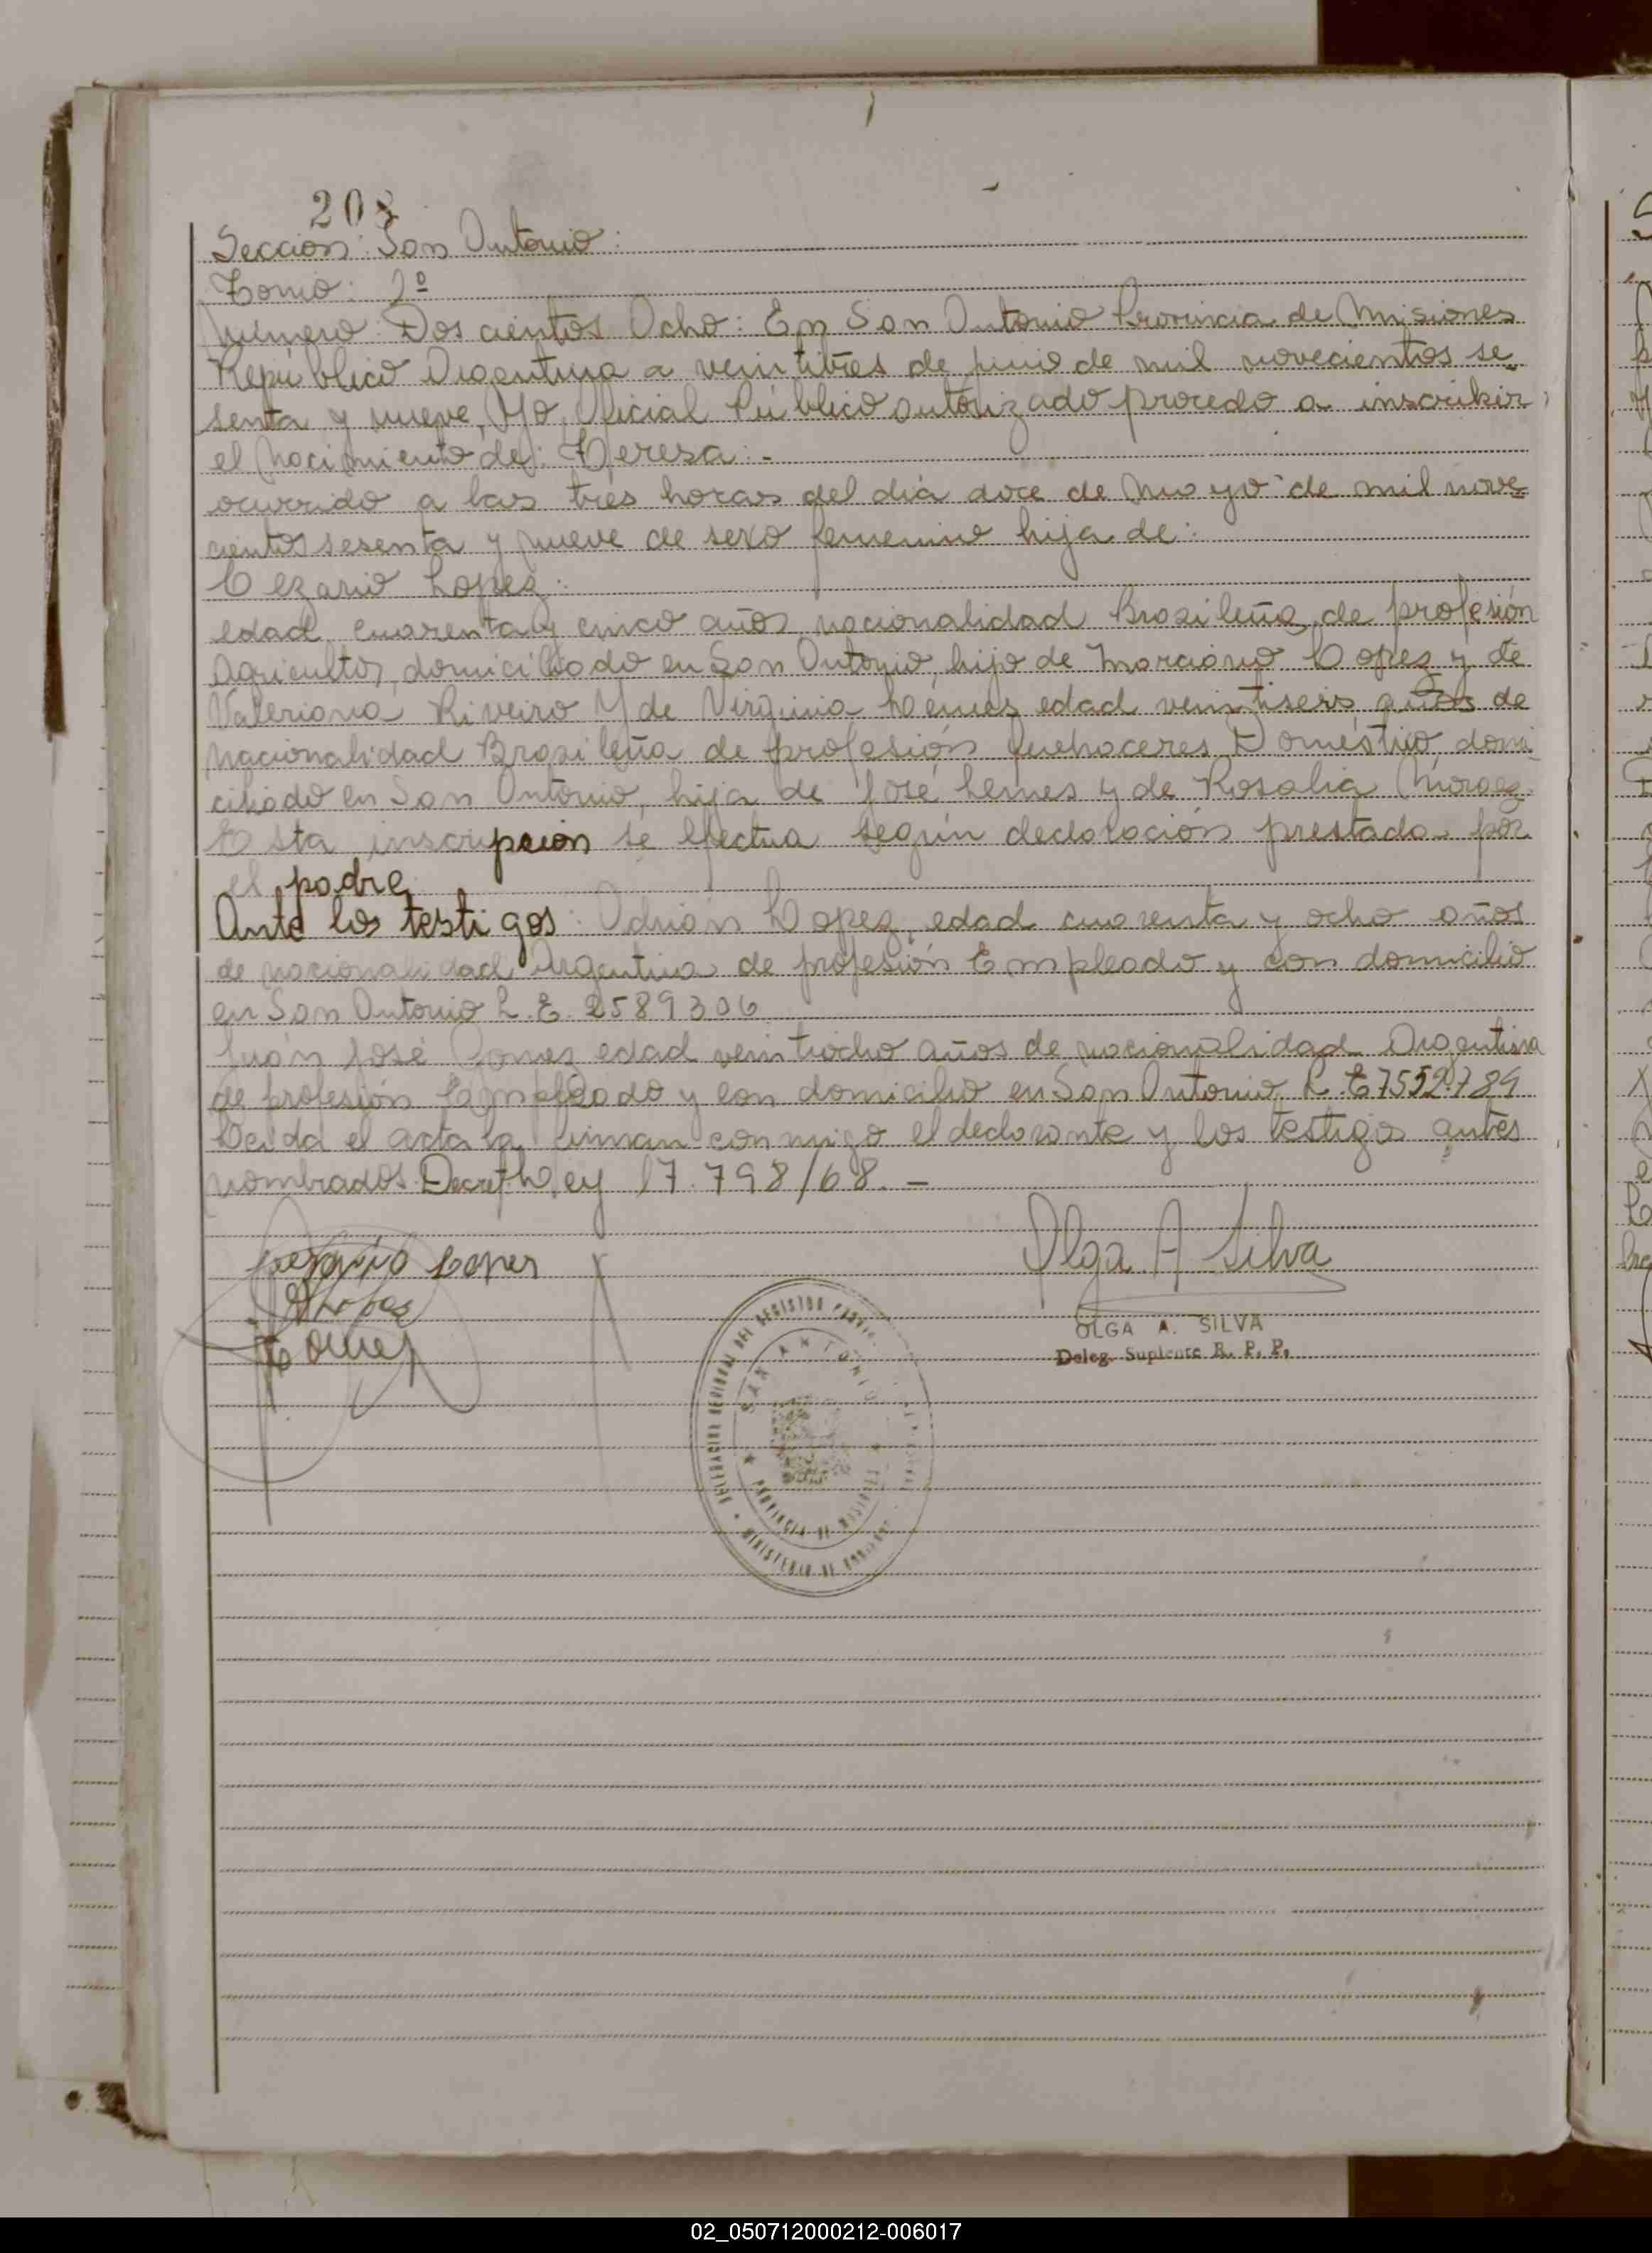 208
Sección: San Antonio:
Tomo: 2º
Número: Dos cientos Ocho: En San Antonio Provincia de Misiones
República Argentina a veintitres de junio de mil novecientos se
senta y nueve, Yo, Oficial Público autorizado procedo a inscribir
el Nacimiento de: Teresa: -
ocurrido a las tres horas del día doce de Mayo de mil nove
cientos sesenta y nueve de sexo femenino hija de:
Cezario Lopez:
edad cuarenta y cinco años nacionalidad Brasileña, de profesión
Agricultor, domiciliado en San Antonio, hijo de Marciano Lopez y de
Valeriana Riveiro Y de Virginia Lémes edad veintiseis años de
nacionalidad Brasileña de profesión Quehaceres Doméstico domi
ciliado en San Antonio, hija de José Lemes y de Rosalia Moraez.
Esta inscripción se efectua según declaración prestada por
el padre
Ante los testigos: Adrián Lopez, edad cuarenta y ocho años
de nacionalidad Argentina de profesión Empleado y con domicilio
en San Antonio L. E. 2589306
Juán José Gomez edad veintiocho años de nacionalidad Argentina
de profesión Empleado y con domicilio en San Antonio, L. E 7552.789
Leída el acta la firman conmigo el declarante y los testigos antes
nombrados. Decreto Ley 17.798/68. -
Olga A Silva
Lopes
Gomez
OLGA A. SILVA
Deleg. Suplente R. P. P.
DELEGACION REGIONAL DEL REGISTRO
SAN ANTONIO
PROVINCIA DE MISIONES
MINISTERIO DE GOBIERNO
02_050712000212-006017